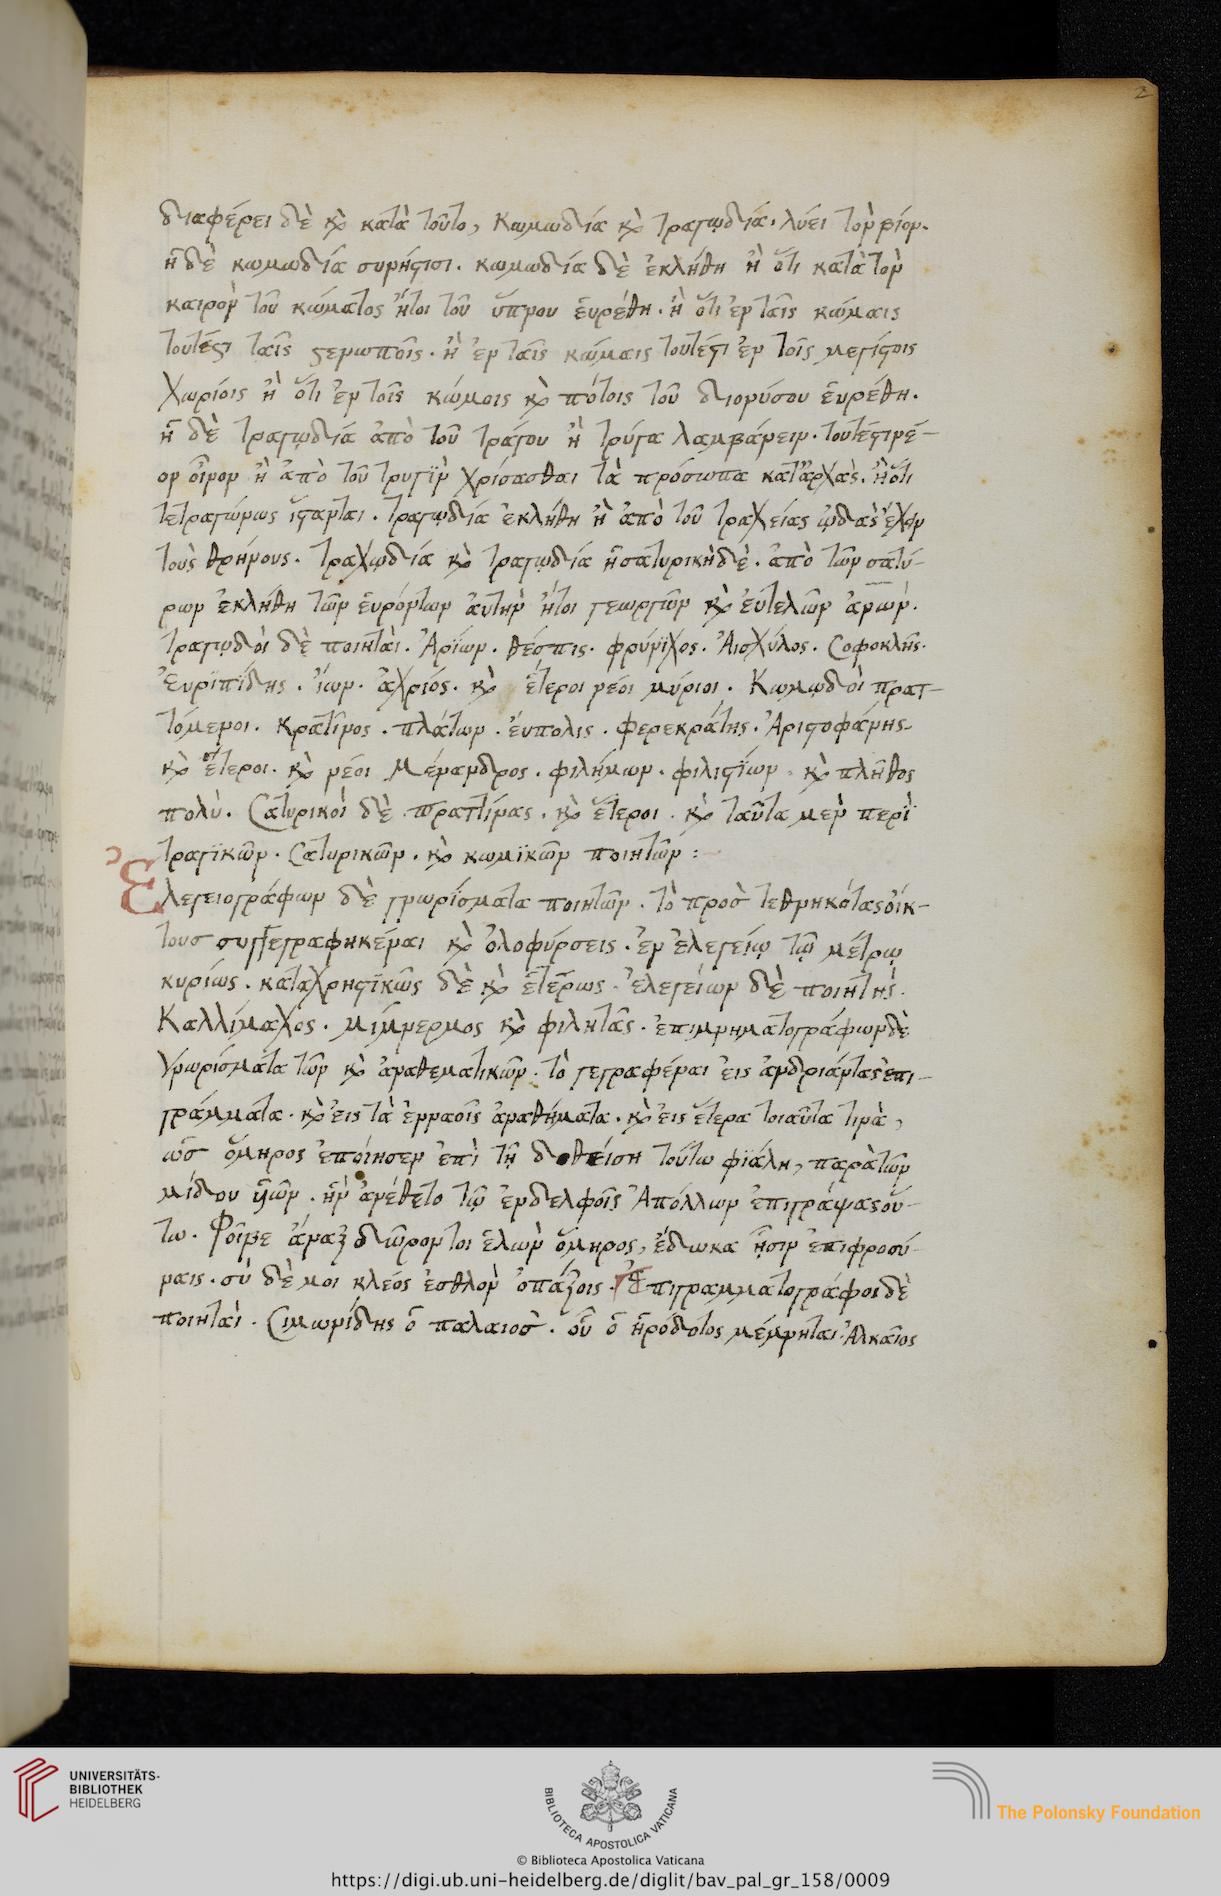 2
διαφέρει δὲ κὸ κατὰ τοῦτο, κωμωδία κὸ τραγῳδία. λύει τὸν βίον.
ἡ δὲ κωμωδία συνίστησι. κωμωδία δὲ ἐκλήθη ἢ ὅτι κατὰ τὸν
καιρὸν τοῦ κώματος ἤτοι τοῦ ὕπνου ἑυρέθη. ἢ ὅτι ἐν ταῖς κώμαις
τουτέστι ταῖς στενωποῖς. ἢ ἐν ταῖς κώμαις τουτέστι ἐν τοῖς μεγίστοις
χωρίοις ἢ ὅτι ἐν τοῖς κώμοις κὸ πότοις τοῦ διονύσου ἑυρέθη.
ἡ δὲ τραγῳδία ἀπὸ τοῦ τράγον ἢ τρύγα λαμβάνειν. τουτέστι νέ-
ον οἶνον ἢ ἀπὸ τοῦ τρυγῒ χρίσασθαι τὰ πρόσωπα κατ' ἀρχὰς. ἢ ὅτι
τετραγώνως ἵσταντι. τραγῳδία ἐκλήθη ἢ ἀπὸ τοῦ τραχείας ᾠδὰς ἔχειν
τοὺς θρήνους. τραχῳδία κὸ τραγῳδία ἡ σατυρικὴ δὲ. ἀπὸ τῶν σατύ-
ρων ἐκλήθη τῶν ἑυρόντων ἀυτὴν ἤτοι γεωργῶν κὸ ἐυτελῶν ἀνων.
τραγῳδοὶ δὲ ποιηταὶ. Ἀρίων. θέσπις. φρύνιχος. Ἀισχύλος. Σοφοκλῆς.
Ἐυριπίδης. ἴων. ἀχαιός. κὸ ἕτεροι νέοι μύριοι. Κωμῳδοὶ πρατ-
τόμενοι. κρατῖνος. πλάτων. ἔυπολις. φερεκράτης. Ἀριστοφάνης
κὸ ἕτεροι. κὸ νέοι Μένανδρος. φιλήμων. φιλιστίων. κὸ πλῆθος
πολύ. Σατυρικοὶ δὲ πρατίνας. κὸ ἕτεροι. κὸ ταῦτα μὲν περὶ
τραγικῶν. Σατυρικῶν. κὸ κωμικῶν ποιητῶν :
Ἐλεγειογράφων δὲ γνωρίσματα ποιητῶν. τὸ πρὸσ τεθνηκότας οἴκ-
τουσ συγγεγραφηκέναι κὸ ὀλοφύρσεις. ἐν ἐλεγείῳ τῷ μέτρῳ
κυρίως. καταχρηστικῶς δὲ κὸ ἑτέρως. ἐλεγείων δὲ ποιητής.
Καλλίμαχος. μίμνερμος κὸ φιλητᾶς. ἐπιμνηματογράφων δὲ
γνωρίσματα τῶν κὸ ἀναθεματικῶν. τὸ γεγραφέναι ἐις ἀνδριάντας ἐπι-
γράμματα. κὸ ἐις τὰ ἐν ναοῖς ἀναθήματα. κὸ ἐις ἕτερα τοιαῦτα τινὰ,
ὡσ ὅμηρος ἐποίησεν ἐπὶ τῇ δοθείση τούτω φιάλη, παρὰ τῶν
μίδου υἱῶν. ἣν ἀνέθετο τῷ ἐν δελφοῖς Ἀπόλλων ἐπιγράψας οὕ-
τω. Φοῖβε ἄναξ δῶρον τοι ἑλὼν ὅμηρος, ἔδωκα ᾗσιν ἐπιφροσύ-
ναις. σὺ δὲ μοι κλέος ἐσθλὸν ὀπάζοις. Ἐπιγραμματογράφοι δὲ
ποιηταὶ. Σιμωνίδης ὁ παλαιοσ. οὗ ὁ ἡρόδοτος μέμνηται. Ἀλκαῖος
UNIVERSITÄTS-
BIBLIOTHEK
HEIDELBERG
BIBLIOTECA APOSTOLICA VATICANA
The Polonsky Foundation
© Biblioteca Apostolica Vaticana
https://digi.ub.uni-heidelberg.de/diglit/bav_pal_gr_158/0009